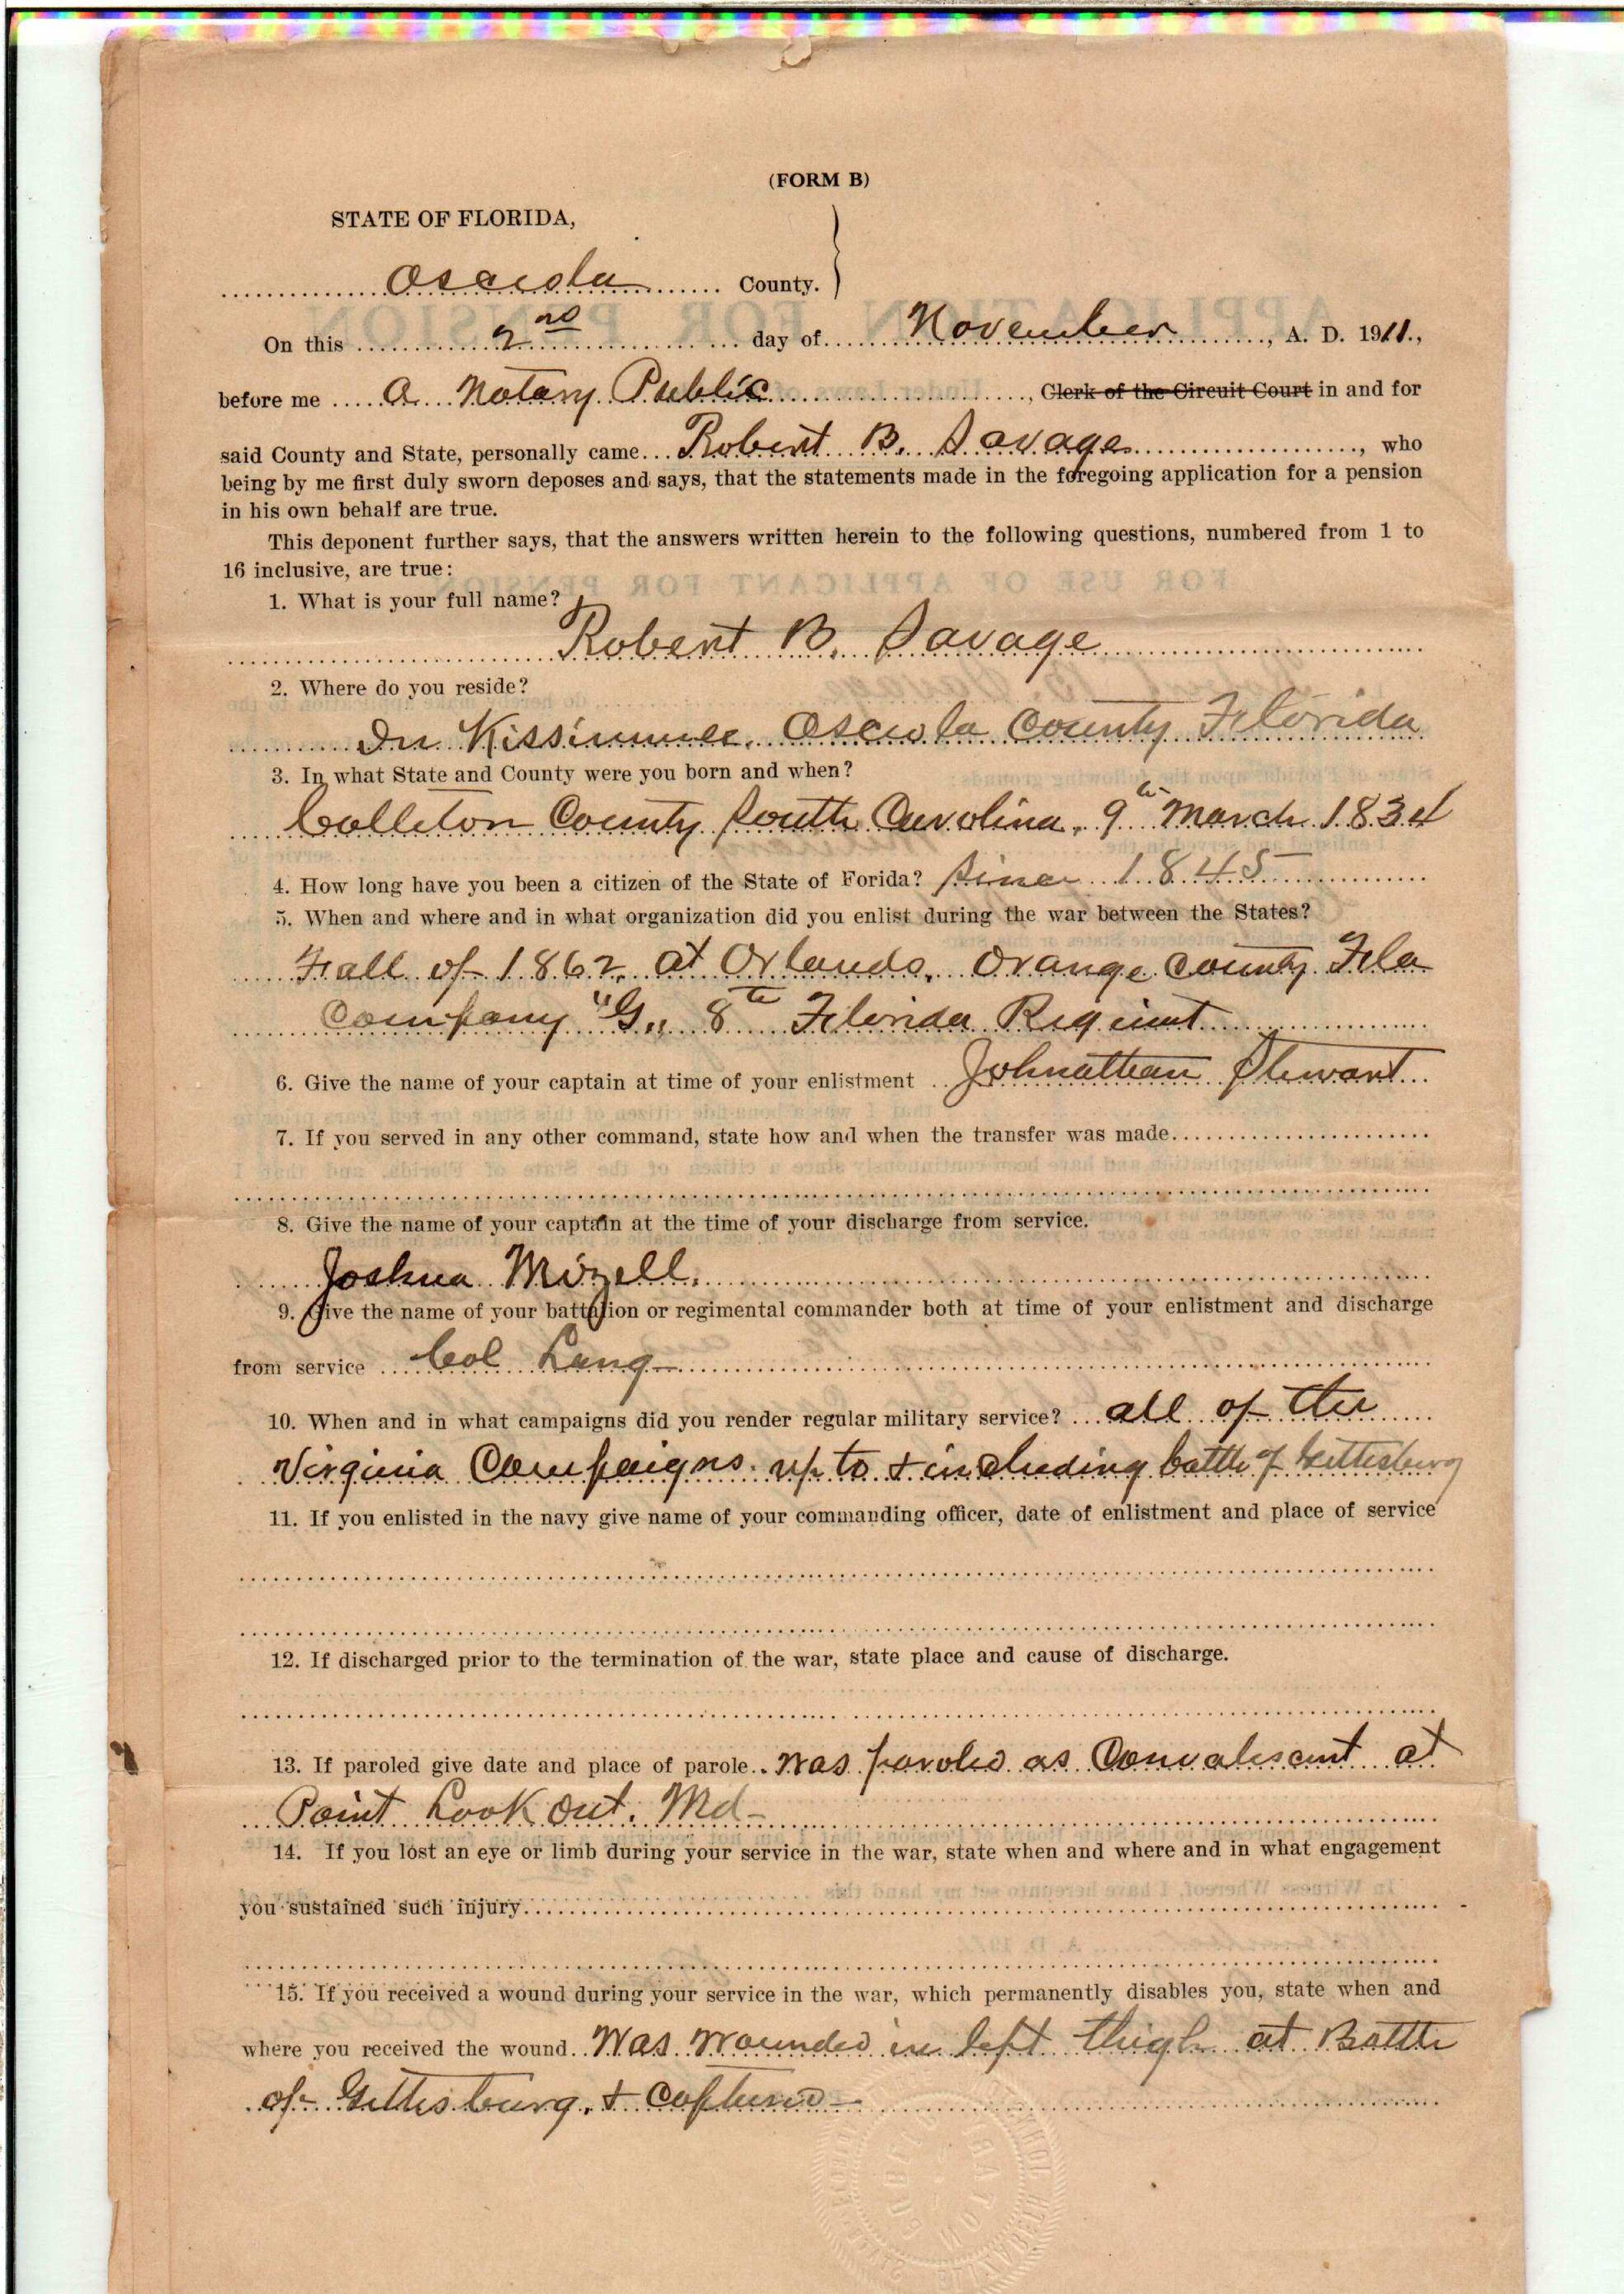 (FORM B)
STATE OF FLORIDA,
Osceola County.
On this 2nd day of November, A. D. 1911.,
before me a Notary Public, Clerk of the Circuit Court in and for
said County and State, personally came Robert B. Savage, who
being by me first duly sworn deposes and says, that the statements made in the foregoing application for a pension
in his own behalf are true.
This deponent further says, that the answers written herein to the following questions, numbered from 1 to
16 inclusive, are true:
1. What is your full name?
Robert B. Savage
2. Where do you reside?
In Kissimmee, Osceola County Florida
3. In what State and County were you born and when?
Colleton County South Carolina, 9th March 1834
4. How long have you been a citizen of the State of Forida? Since 1845
5. When and where and in what organization did you enlist during the war between the States?
Fall of 1862 at Orlando, Orange County Fla
Company "G" 8th Florida Regiment
6. Give the name of your captain at time of your enlistment Johnathan Stewart
7. If you served in any other command, state how and when the transfer was made
8. Give the name of your captain at the time of your discharge from service.
Joshua Mizell.
9. Give the name of your battalion or regimental commander both at time of your enlistment and discharge
from service Col Lang
10. When and in what campaigns did you render regular military service? all of the
Virginia Campaigns up to & including battle of Gettesburg
11. If you enlisted in the navy give name of your commanding officer, date of enlistment and place of service
12. If discharged prior to the termination of the war, state place and cause of discharge.
13. If paroled give date and place of parole. Was paroled as Convalescent at
Point Look out. Md-
14. If you lost an eye or limb during your service in the war, state when and where and in what engagement
you sustained such injury
15. If you received a wound during your service in the war, which permanently disables you, state when and
where you received the wound. Was wounded in left thigh at Battle
of Gettisburg. & Captured-